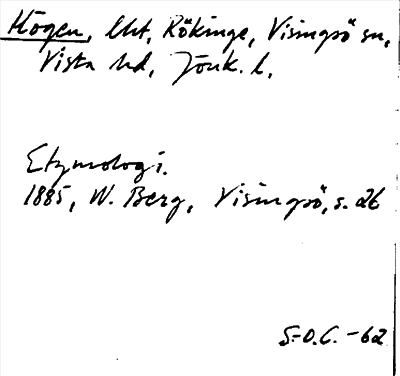 Högen, lht, Rökinge, Visingsö sn,
Vista hd, Jönk. l.
Etymologi.
1885, W. Berg, Visingsö, s. 26
S.-O.C. -62